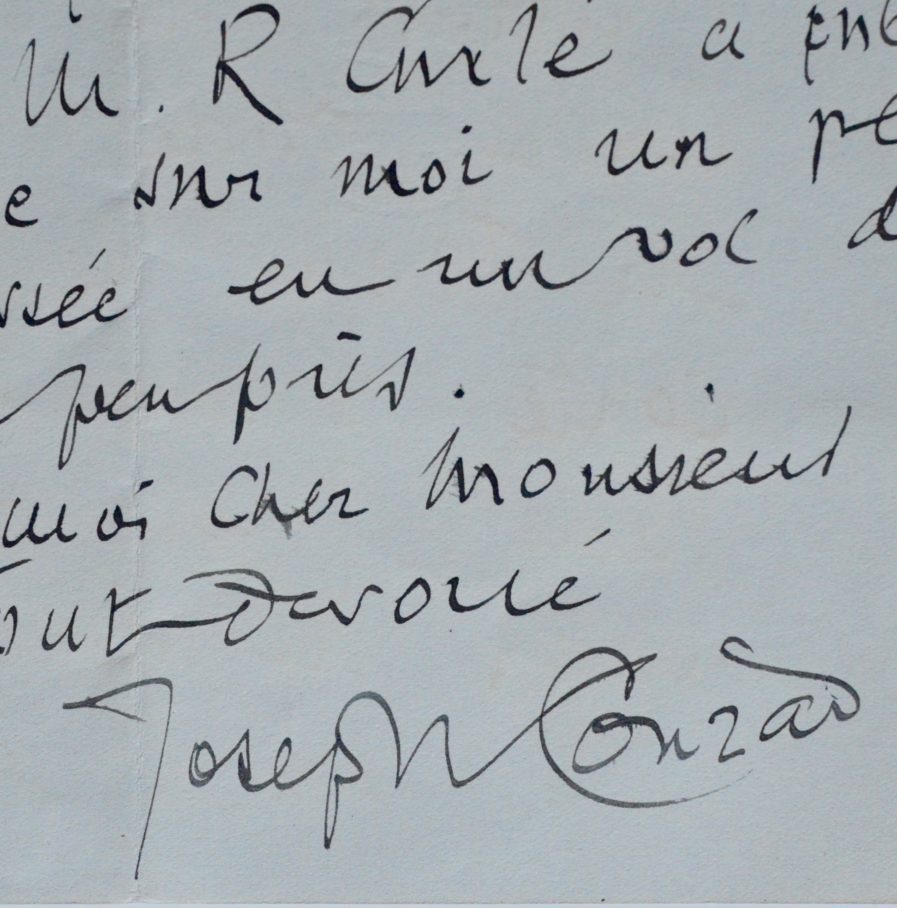 M. R Curle a pub
e sur moi un pe
ssée en un vol d
peu près.
moi Cher Monsieur
out dévoué
Joseph Conrad